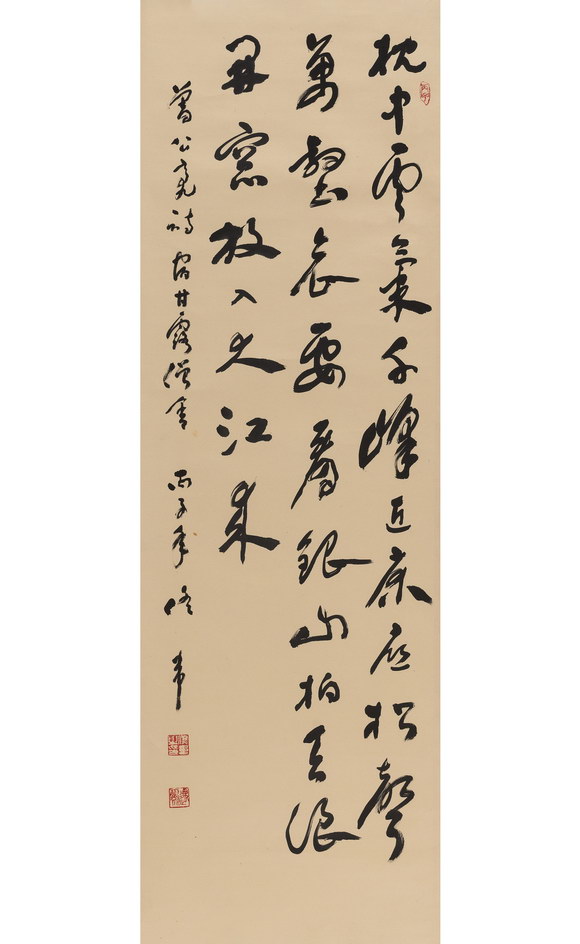 枕中雲氣千峰近床底松聲
萬壑哀要看銀山拍天浪
開窗放入大江來
曾公亮詩宿甘露僧舍 丙子年 佟韦